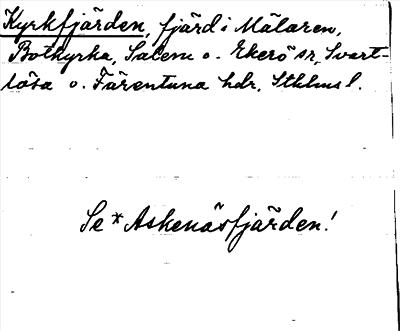 Kyrkfjärden, fjärd i Mälaren,
Botkyrka, Salem o. Ekerö snr, Svart-
lösa o. Färentuna hdr, Sthlms l.
Se * Askenäsfjärden!